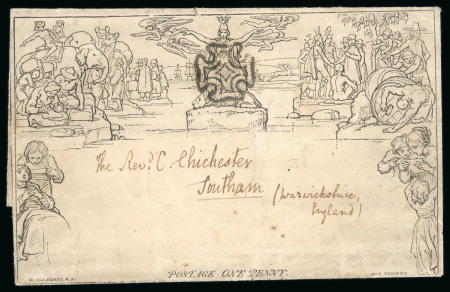 The Revd. C. Chichester
Southam (Warwickshire,
England)
W. MULREADY, R.A.
POSTAGE ONE PENNY.